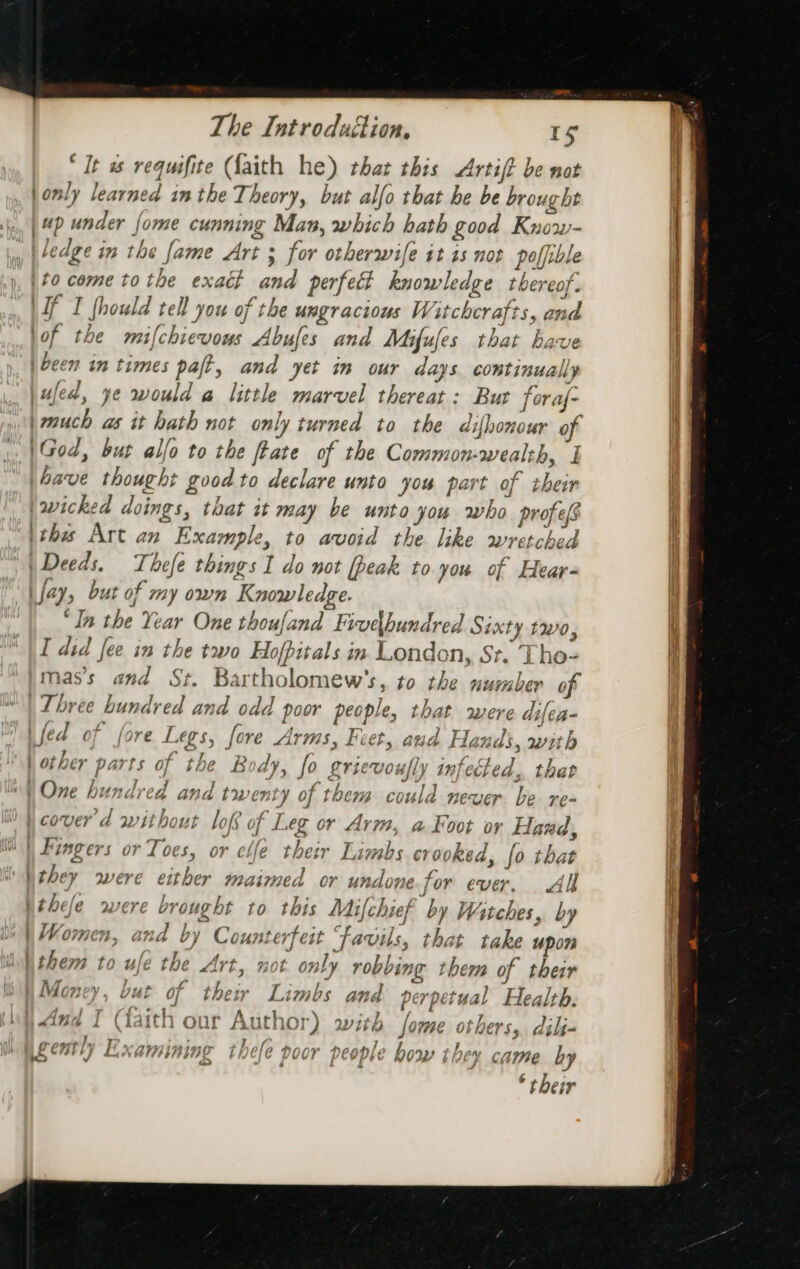 The Introduction, 15
‘ It is requiſite (ſaith he) that this Artiſt be not
only learned in the Theory, but alſo that he be brought
up under ſome cunning Man, which hath good Know-
ledge in the ſame Art ; for otherwiſe it is not poſſible
to come to the exact and perfect knowledge thereof.
If I ſhould tell you of the ungracious Witchcrafts, and
of the miſchievous Abuſes and Miſuſes that have
been in times paſt, and yet in our days continually
uſed, ye would a little marvel thereat : But foraſ-
much as it hath not only turned to the diſhonour of
God, but alſo to the ſtate of the Common-wealth, I
have thought good to declare unto you part of their
wicked doings, that it may be unto you who profeſs
this Art an Example, to avoid the like wretched
Deeds. Theſe things I do not ſpeak to you of Hear-
ſay, but of my own Knowledge.
‘ In the Year One thouſand Five hundred Sixty two,
I did ſee in the two Hoſpitals in London, St. Tho-
mas's and St. Bartholomew's, to the number of
Three hundred and odd poor people, that were diſea-
ſed of ſore Legs, ſore Arms, Feet, and Hands, with
other parts of the Body, ſo grievouſly infected, that
One hundred and twenty of them could never be re-
cover'd without loſs of Leg or Arm, a Foot or Hand,
Fingers or Toes, or elſe their Limbs crooked, ſo that
they were either maimed or undone for ever. All
theſe were brought to this Miſchief by Witches, by
Women, and by Counterfeit Javils, that take upon
them to uſe the Art, not only robbing them of their
Money, but of their Limbs and perpetual Health.
And I (ſaith our Author) with ſome others, dili-
gently Examining theſe poor people how they came by
‘ their